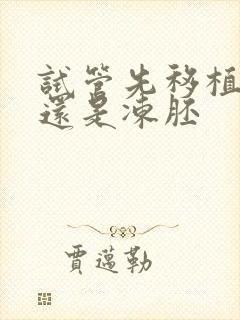 試管先移植
還是凍胚
賈邁勒